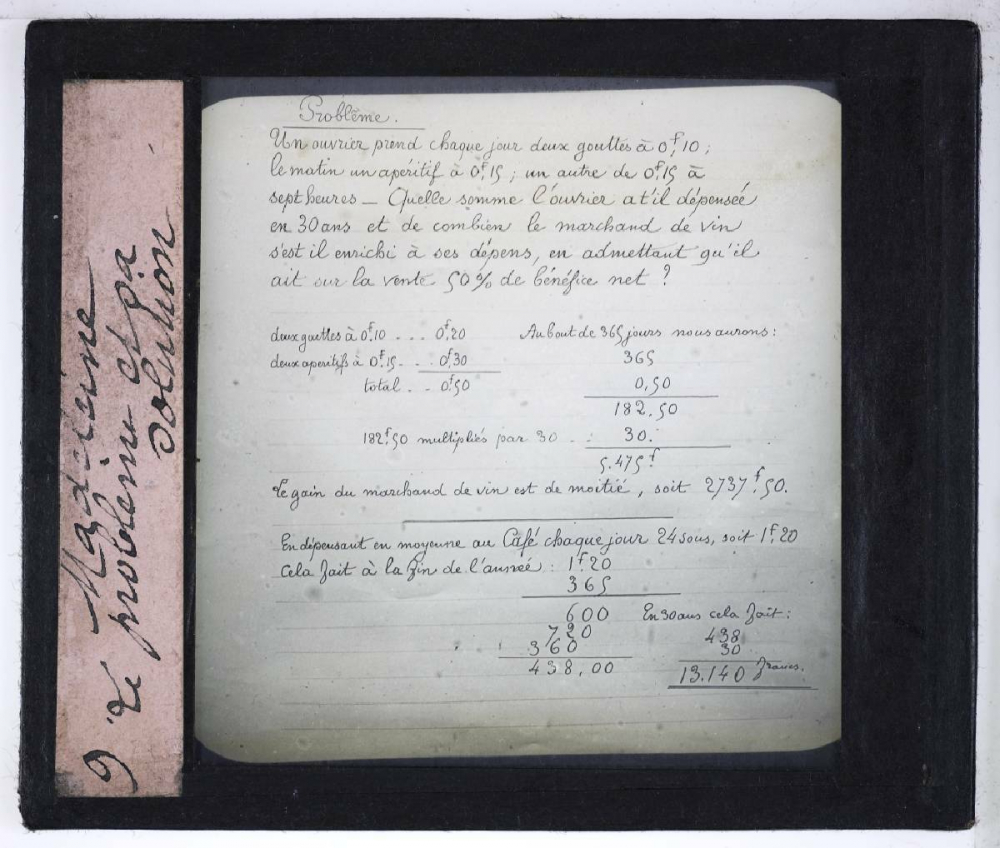 Problème.
Un ouvrier prend chaque jour deux gouttes à 0f,10 ;
le matin un apéritif à 0f,15 ; un autre de 0f,15 à
sept heures — Quelle somme l'ouvrier a t'il dépensée
en 30 ans et de combien le marchand de vin
s'est il enrichi à ses dépens, en admettant qu'il
ait sur la vente 50 % de bénéfice net ?
deux gouttes à 0f,10 ... 0f,20
deux aperitifs à 0f,15 .. 0f,30
total .. 0f,50
Au bout de 365 jours nous aurons :
365
0,50
182.50
182f,50 multipliés par 30 .. 30.
5.475f
Le gain du marchand de vin est de moitié, soit 2737f,50.
En dépensant en moyenne au Café chaque jour 24 sous, soit 1f,20
Cela fait à la fin de l'année : 1f,20
365
600
720
360
438,00
En 30 ans cela fait :
438
30
13.140 francs.
9 Le
problème et sa
solution